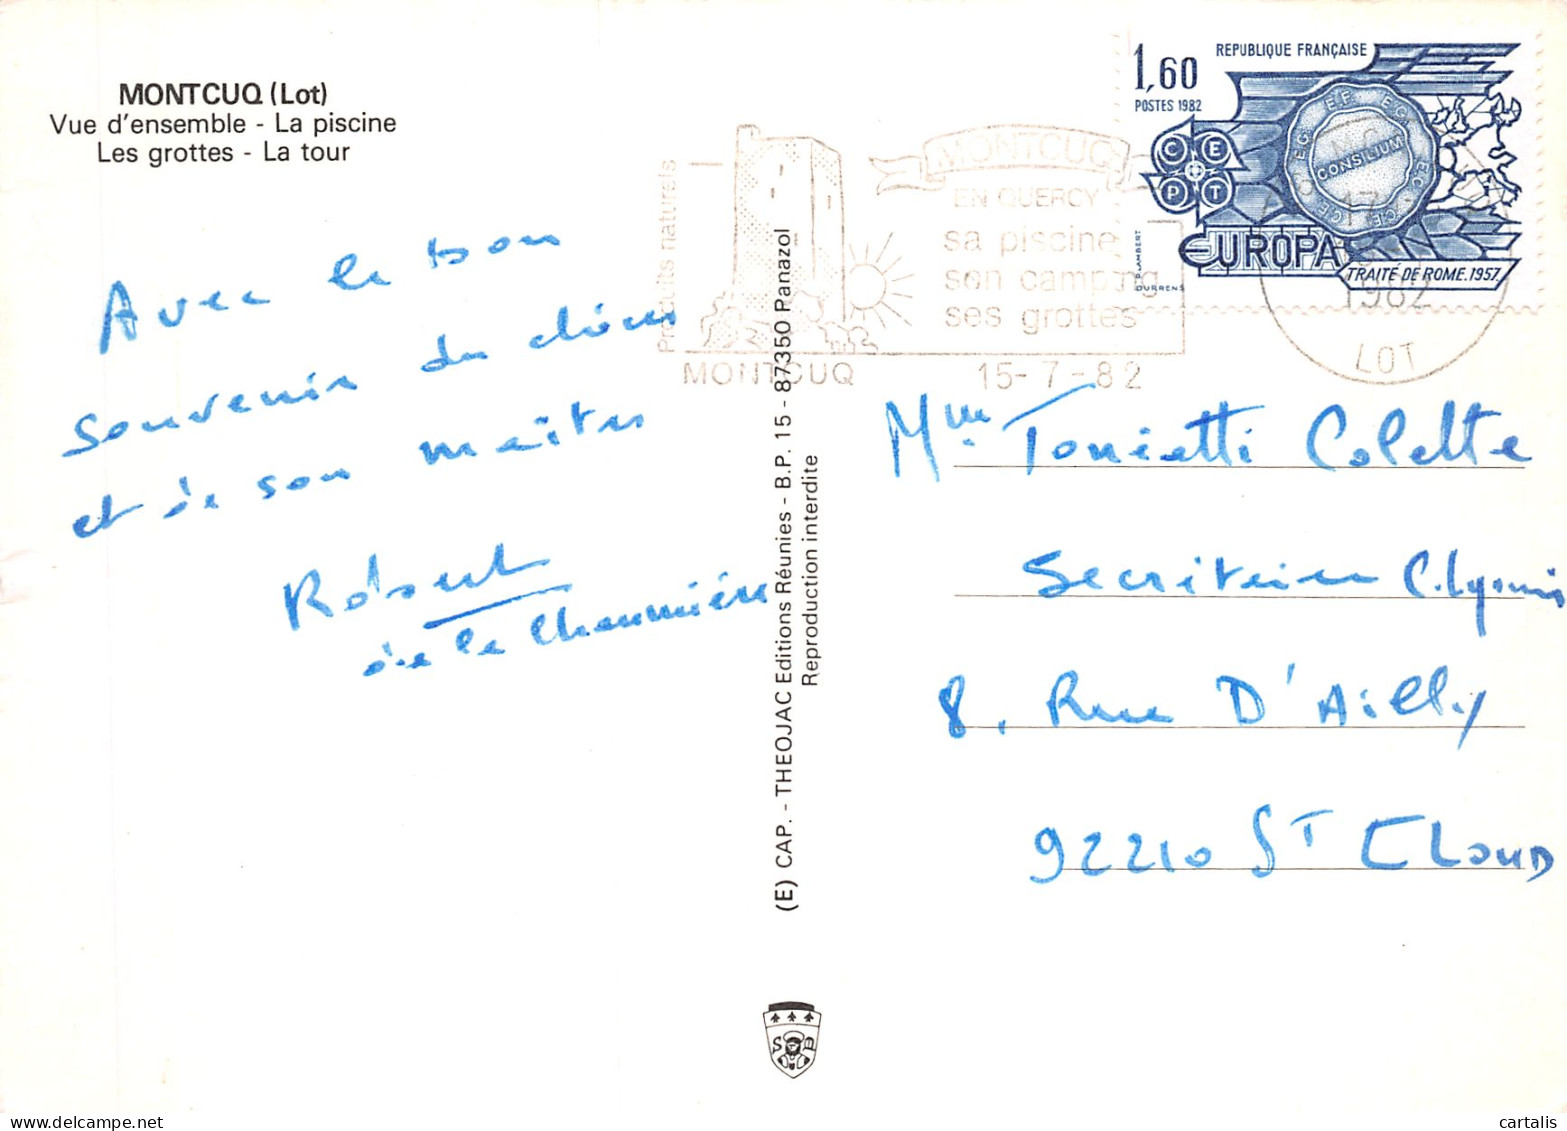 MONTCUQ (Lot)
Vue d'ensemble - La piscine
Les grottes - La tour
Avec le bon
souvenir du chien
et de son maître
Robert
de la Chaumière
Produits naturels
MONTCUQ
MONTCUQ
EN QUERCY
sa piscine
son camping
ses grottes
15-7-82
1,60
POSTES 1982
REPUBLIQUE FRANÇAISE
CEPT
CONSILIUM
EUROPA
TRAITÉ DE ROME.1957
P.LAMBERT
DURRENS
1982
LOT
(E) CAP. - THEOJAC Editions Réunies - B.P. 15 - 87350 Panazol
Reproduction interdite
Mme Tonietti Colette
Secrétaire
8, Rue D'Ailly
92210 ST CLOUD
cartalis